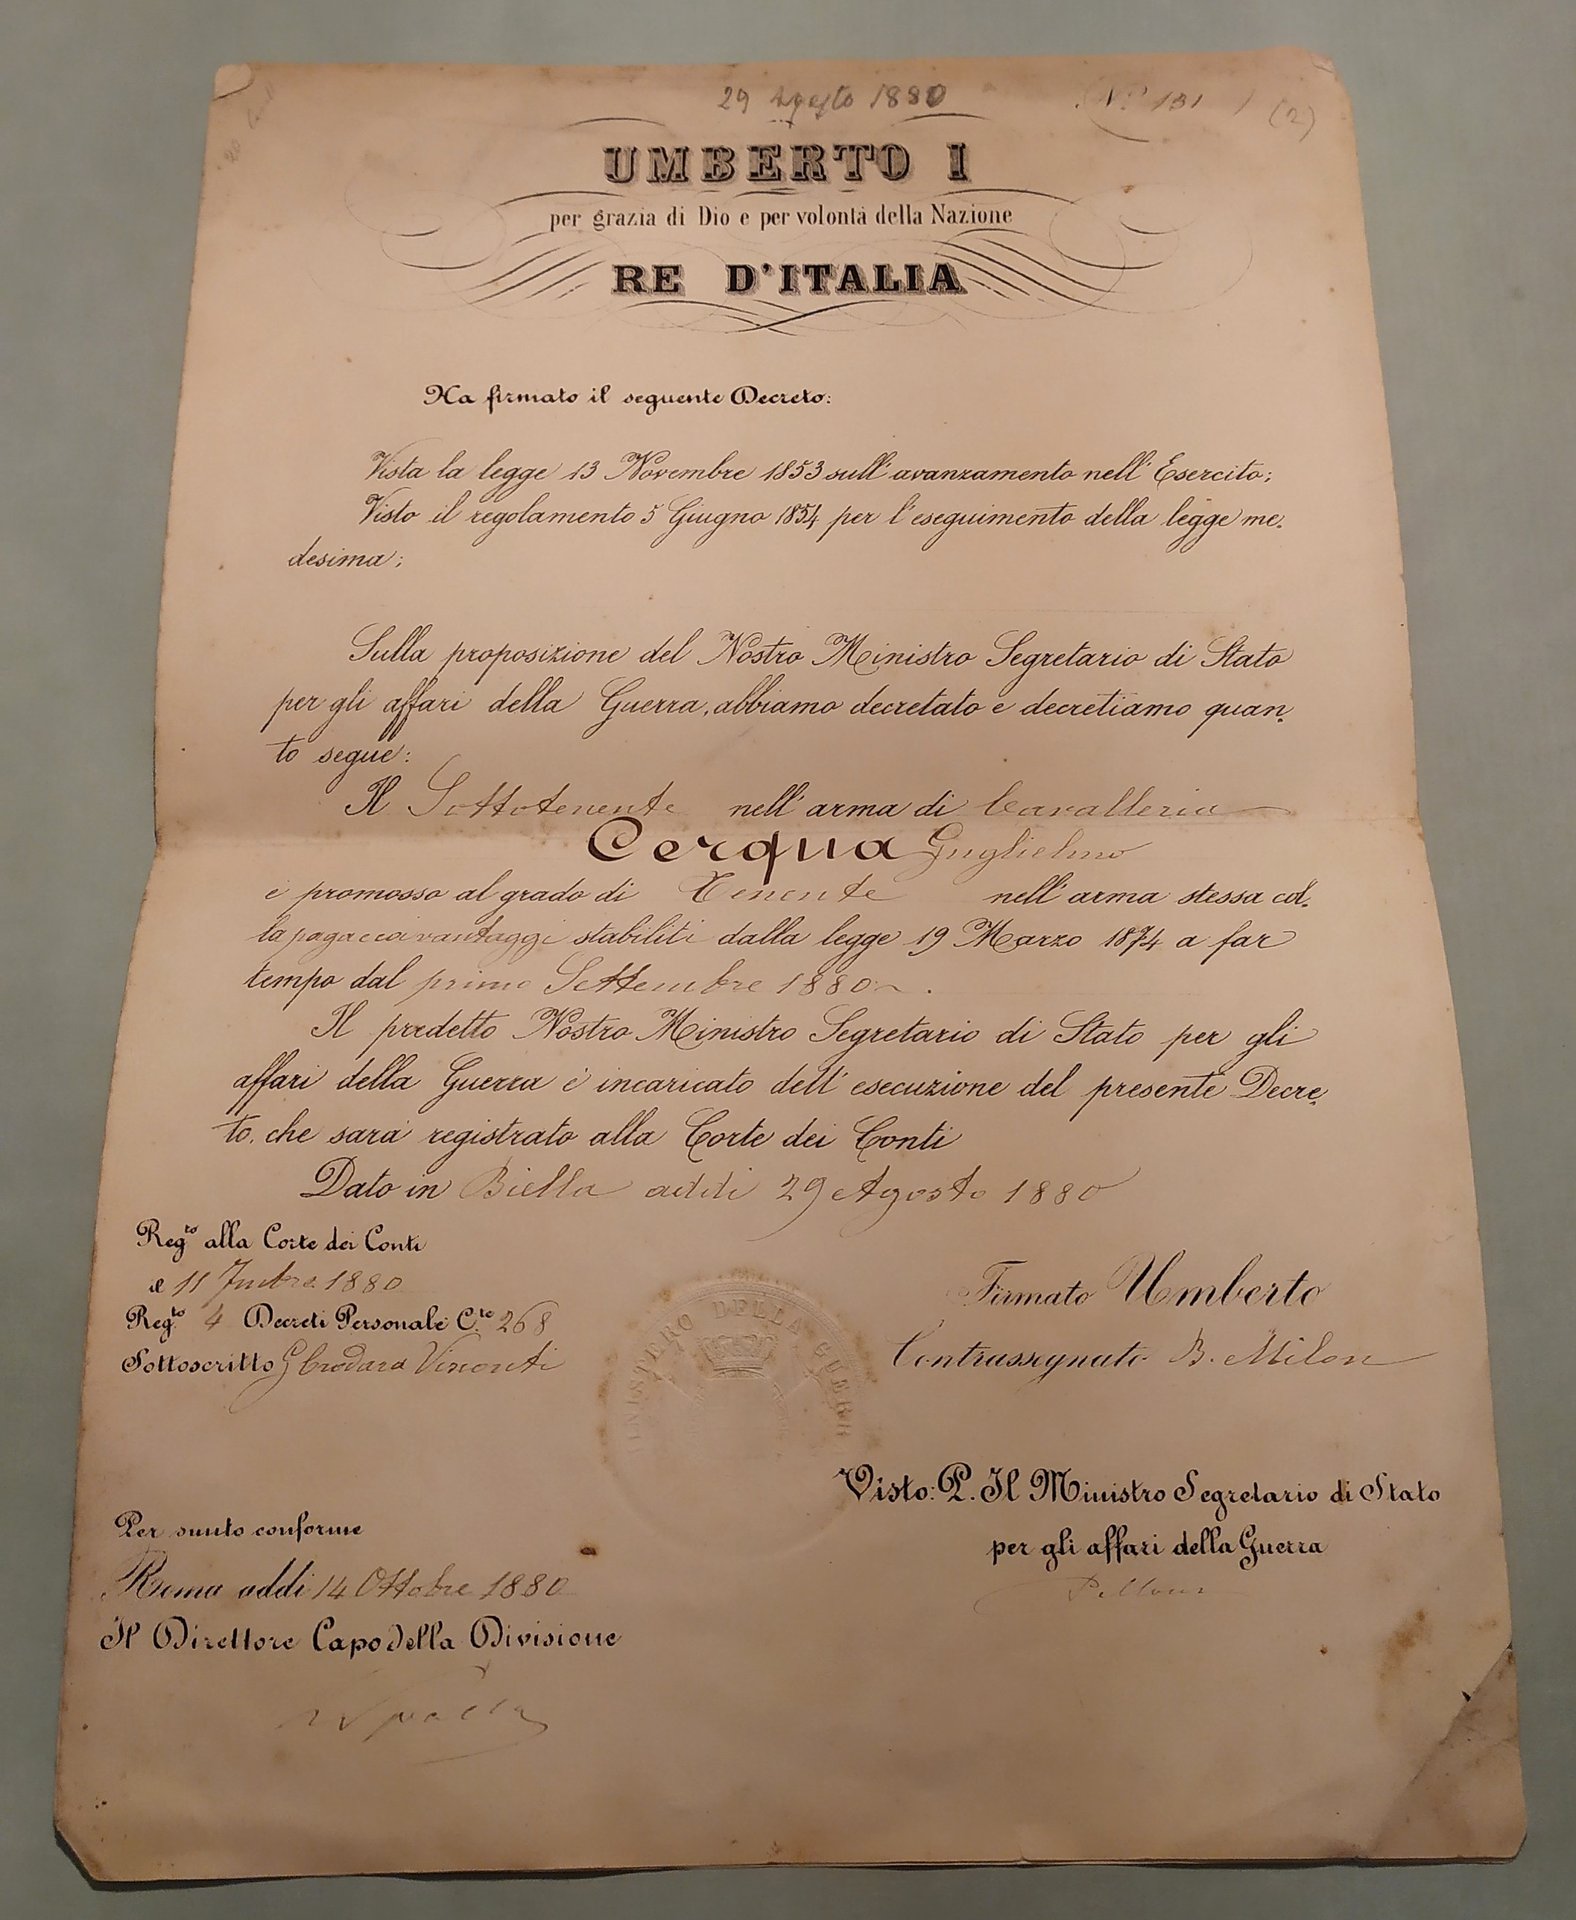 29 Agosto 1880
Nº 131 (2)
UMBERTO I
per grazia di Dio e per volontà della Nazione
RE D'ITALIA
Ha firmato il seguente Decreto:
Vista la legge 13 Novembre 1853 sull'avanzamento nell'Esercito;
Visto il regolamento 5 Giugno 1854 per l'eseguimento della legge me-
desima;
Sulla proposizione del Nostro Ministro Segretario di Stato
per gli affari della Guerra, abbiamo decretato e decretiamo quan-
to segue:
Il Sottotenente nell'arma di Cavalleria
Cerqua Guglielmo
è promosso al grado di Tenente nell'arma stessa col-
la paga e coi vantaggi stabiliti dalla legge 19 Marzo 1874 a far
tempo dal primo Settembre 1880.
Il predetto Nostro Ministro Segretario di Stato per gli
affari della Guerra è incaricato dell'esecuzione del presente Decre-
to, che sarà registrato alla Corte dei Conti
Dato in Biella addì 29 Agosto 1880
Reg.to alla Corte dei Conti
il 11 7mbre 1880
Reg.to 4 Decreti Personale C.te 268
Sottoscritto G Crodara Visconti
Firmato Umberto
Contrassegnato B. Milon
MINISTERO DELLA GUERRA
Visto: P. Il Ministro Segretario di Stato
per gli affari della Guerra
Pelloux
Per sunto conforme
Roma addì 14 Ottobre 1880
Il Direttore Capo della Divisione